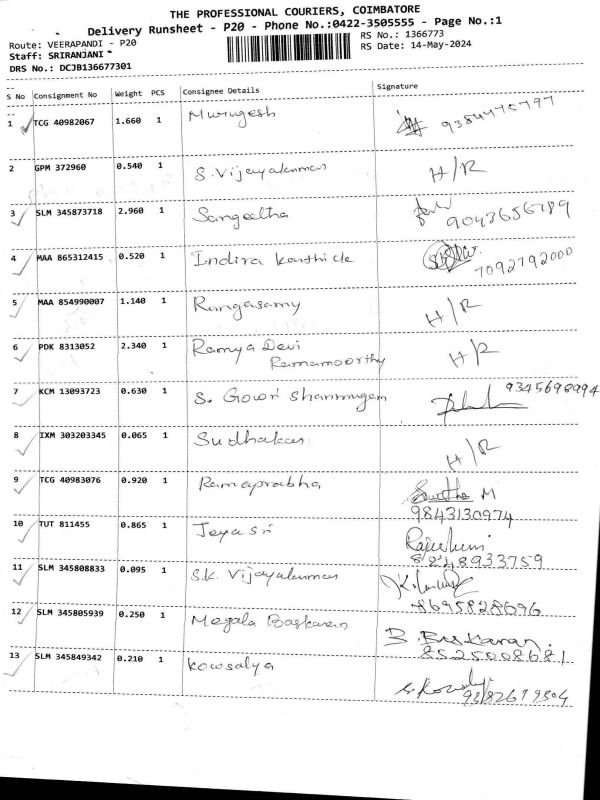 THE PROFESSIONAL COURIERS, COIMBATORE
Delivery Runsheet - P20 - Phone No.:0422-3505555 - Page No.:1
Route: VEERAPANDI - P20
RS No.: 1366773
Staff: SRIRANJANI *
RS Date: 14-May-2024
DRS No.: DCJB136677301
S No Consignment No Weight PCS Consignee Details Signature
1 TCG 40982067 1.660 1 Murugesh 9384475797
2 GPM 372960 0.540 1 S. Vijayalanmas H/R
3 SLM 345873718 2.960 1 Sangeetha 9043656789
4 MAA 865312415 0.520 1 Indira 7092792000
5 MAA 854990007 1.140 1 Rangasamy H/R
6 PDK 8313052 2.340 1 Ramya Devi H/R
Ramamoorthy
7 KCM 13093723 0.630 1 S. Gowri Shanmugam
8 IXM 303203345 0.065 1 Sudhakar H/R
9 TCG 40983076 0.920 1 Ramaprabha Swetha M
9843130974
10 TUT 811455 0.865 1 Jeyasri
8248933759
11 SLM 345808833 0.095 1 S.K. Vijayalanmas
8695828696
12 SLM 345805939 0.250 1 Megala Baskaran B. Baskaran.
8525008681
13 SLM 345849342 0.210 1 Kowsalya